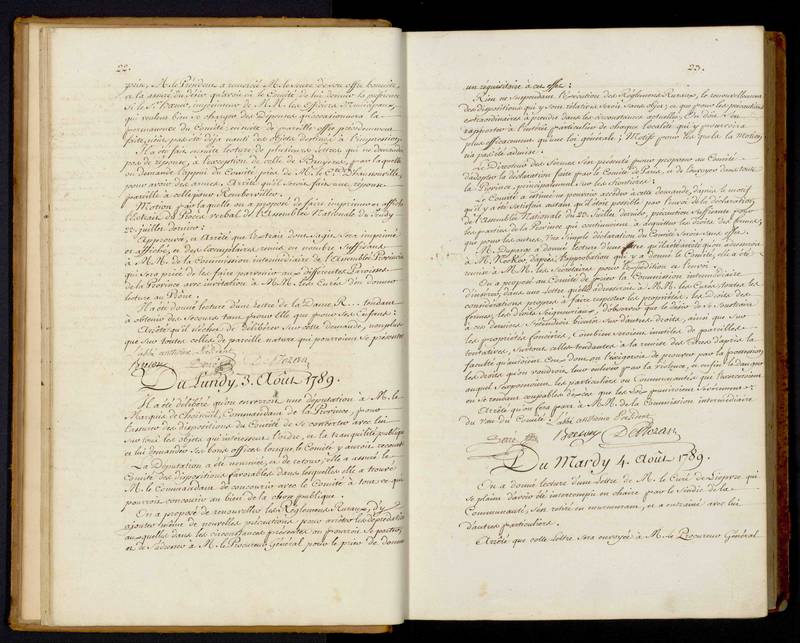 22.
prise, M. le Président a remercié M. le vicaire de son offre honnête,
et l'a assuré du désir qu'avoit le Comité de lui donner la préférence
si le Sr. Bœuv, imprimeur de M.M. les Officiers Municipaux,
qui veulent bien se charger des Dépenses qu'occasionnera la
permanence du Comité,
fait n'eut pas été déjà nanti des objets destinés à l'impression.
Il a été fait ensuite lecture de plusieurs Lettres qui ne demandent
pas de réponse, à l'exception de celle de Bruyeres, par laquelle
on demande l'appui du Comité près de M. le Cte. d'Haussonville,
pour avoir des armes. Arrêté qu'il seroit fait une réponse
pareille à celle pour Rambervillers.
Motion par laquelle on a proposé de faire imprimer et afficher
l'extrait du Procès verbal de l'Assemblée Nationale du Jeudy
23. juillet dernier;
Approuvé, et Arrêté que l'extrait dont s'agit sera imprimé
et affiché, et des Exemplaires remis en nombre suffisant
à M.M. de la Commission intermédiaire de l'Assemblée Provinciale
qui sera priée de les faire parvenir aux différentes Paroisses
de la Province avec invitation à M.M. les Curés d'en donner
lecture au Prône;
Il a été donné lecture d'une lettre de la Dame R... tendante
à obtenir des Secours tant pour Elle que pour ses Enfans;
Arrêté qu'il n'échet de délibérer sur cette demande, non plus
que sur toutes celles de pareille nature qui pourroient se présenter
L'abbé anthoine Président
DeMezan
Du Lundy 3. Août 1789.
Il a été délibéré qu'on enverroit une députation à M. le
Marquis de Choiseuil, Commandant de la Province, pour
l'assurer des dispositions du Comité de se concerter avec lui
sur tous les objets qui intéressent l'ordre, et la tranquilité publique
et lui demander ses bons offices lorsque le Comité y auroit recours
La Députation a été nommée, et de retour, elle a assuré le
Comité des dispositions favorables dans lesquelles elle a trouvé
M. le Commandant de concourir avec le Comité à tout ce qui
pourroit concourir au bien de la chose publique.
On a proposé de renouveller les Réglemens Ruraux, d'y
ajouter même de nouvelles précautions pour arrêter les déprédations
auxquelles dans les circonstances présentes on pourroit se porter,
et de s'adresser à M. le Procureur Général pour le prier de donner
23.
un réquisitoire à cet effet;
Rien ne suspendant l'exécution des Réglemens Ruraux, le renouvellement
des dispositions qui y sont relatives seroit sans objet; et que pour les précautions
extraordinaires à prendre dans les circonstances actuelles, On doit s'en
rapporter à l'intérêt particulier de chaque localité qui y pourvoira
plus efficacement qu'une loi générale; Motif pour lequel la Motion
n'a pas été admise.
Le Directeur des Fermes s'est présenté pour proposer au Comité
d'adopter la déclaration faite par le Comité de Paris, et de l'envoyer dans toute
la Province, principalement sur les frontières;
Le Comité a estimé ne pouvoir accéder à cette demande, d'après le motif
qu'il y a été satisfait autant qu'il étoit possible par l'envoi de la déclaration
de l'Assemblée Nationale du 23. Juillet dernier, précaution suffisante pour
les parties de la Province qui continuent à acquitter les Droits des fermes;
que pour les autres, Une simple déclaration du Comité seroit sans effet.
M. Regnault a donné lecture d'une lettre qu'il a rédigée qu'on adresseroit
à M. Necker, d'après l'approbation qui y a donné le Comité, elle a été
remise à M.M. les Secrétaires pour l'expédition et l'envoi.
On a proposé au Comité de prier la Commission intermédiaire
d'insérer, dans une Lettre qu'elle adresseroit à M.M. les Curés, toutes les
considérations propres à faire respecter les propriétés, les Droits des
fermes, les droits Seigneuriaux, d'observer que le désir de se soustraire
à ces derniers s'étendroit bientôt sur d'autres droits, ainsi que sur
les propriétés foncières, Combien seroient inutiles de pareilles
tentatives, surtout celles tendantes à la remise des Titres d'après la
faculté qu'auroient Eux dont on l'exigeroit de prouver par la possession,
les droits qu'on voudroit leur enlever par la violence, et enfin le danger
auquel s'exposeroient les particuliers ou Communautés qui l'exerceroient
en se rendant coupables d'excès que les Loix puniroient sévèrement;
Arrêté qu'on fera part à M.M. de la Commission intermédiaire
du vœu du Comité. L'abbé anthoine Président
DeMezan
Du Mardy 4. Août 1789.
On a donné lecture d'une Lettre de M. le Curé de Liepvre qui
se plaint d'avoir été interrompu en chaire par le Sindic de la
Communauté, s'en retiré en murmurant, et a entraîné avec lui
d'autres particuliers.
Arrêté que cette Lettre sera envoyée à M. le Procureur Général